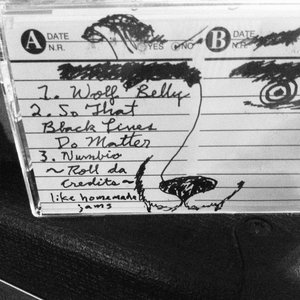 A DATE
N.R. YES NO
B DATE
N.R.
1. Wolf Belly
2. So That
Black Lives
Do Matter
3. Numbio
~ Roll da
credits ~
like homemade
jams